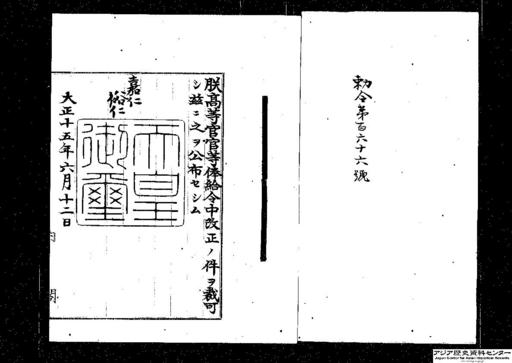 勅令第百六十六號
朕高等官官等俸給令中改正ノ件ヲ裁可
シ茲ニ之ヲ公布セシム
嘉仁
裕仁
天皇
御璽
大正十五年六月十二日
内閣
アジア歴史資料センター
Japan Center for Asian Historical Records